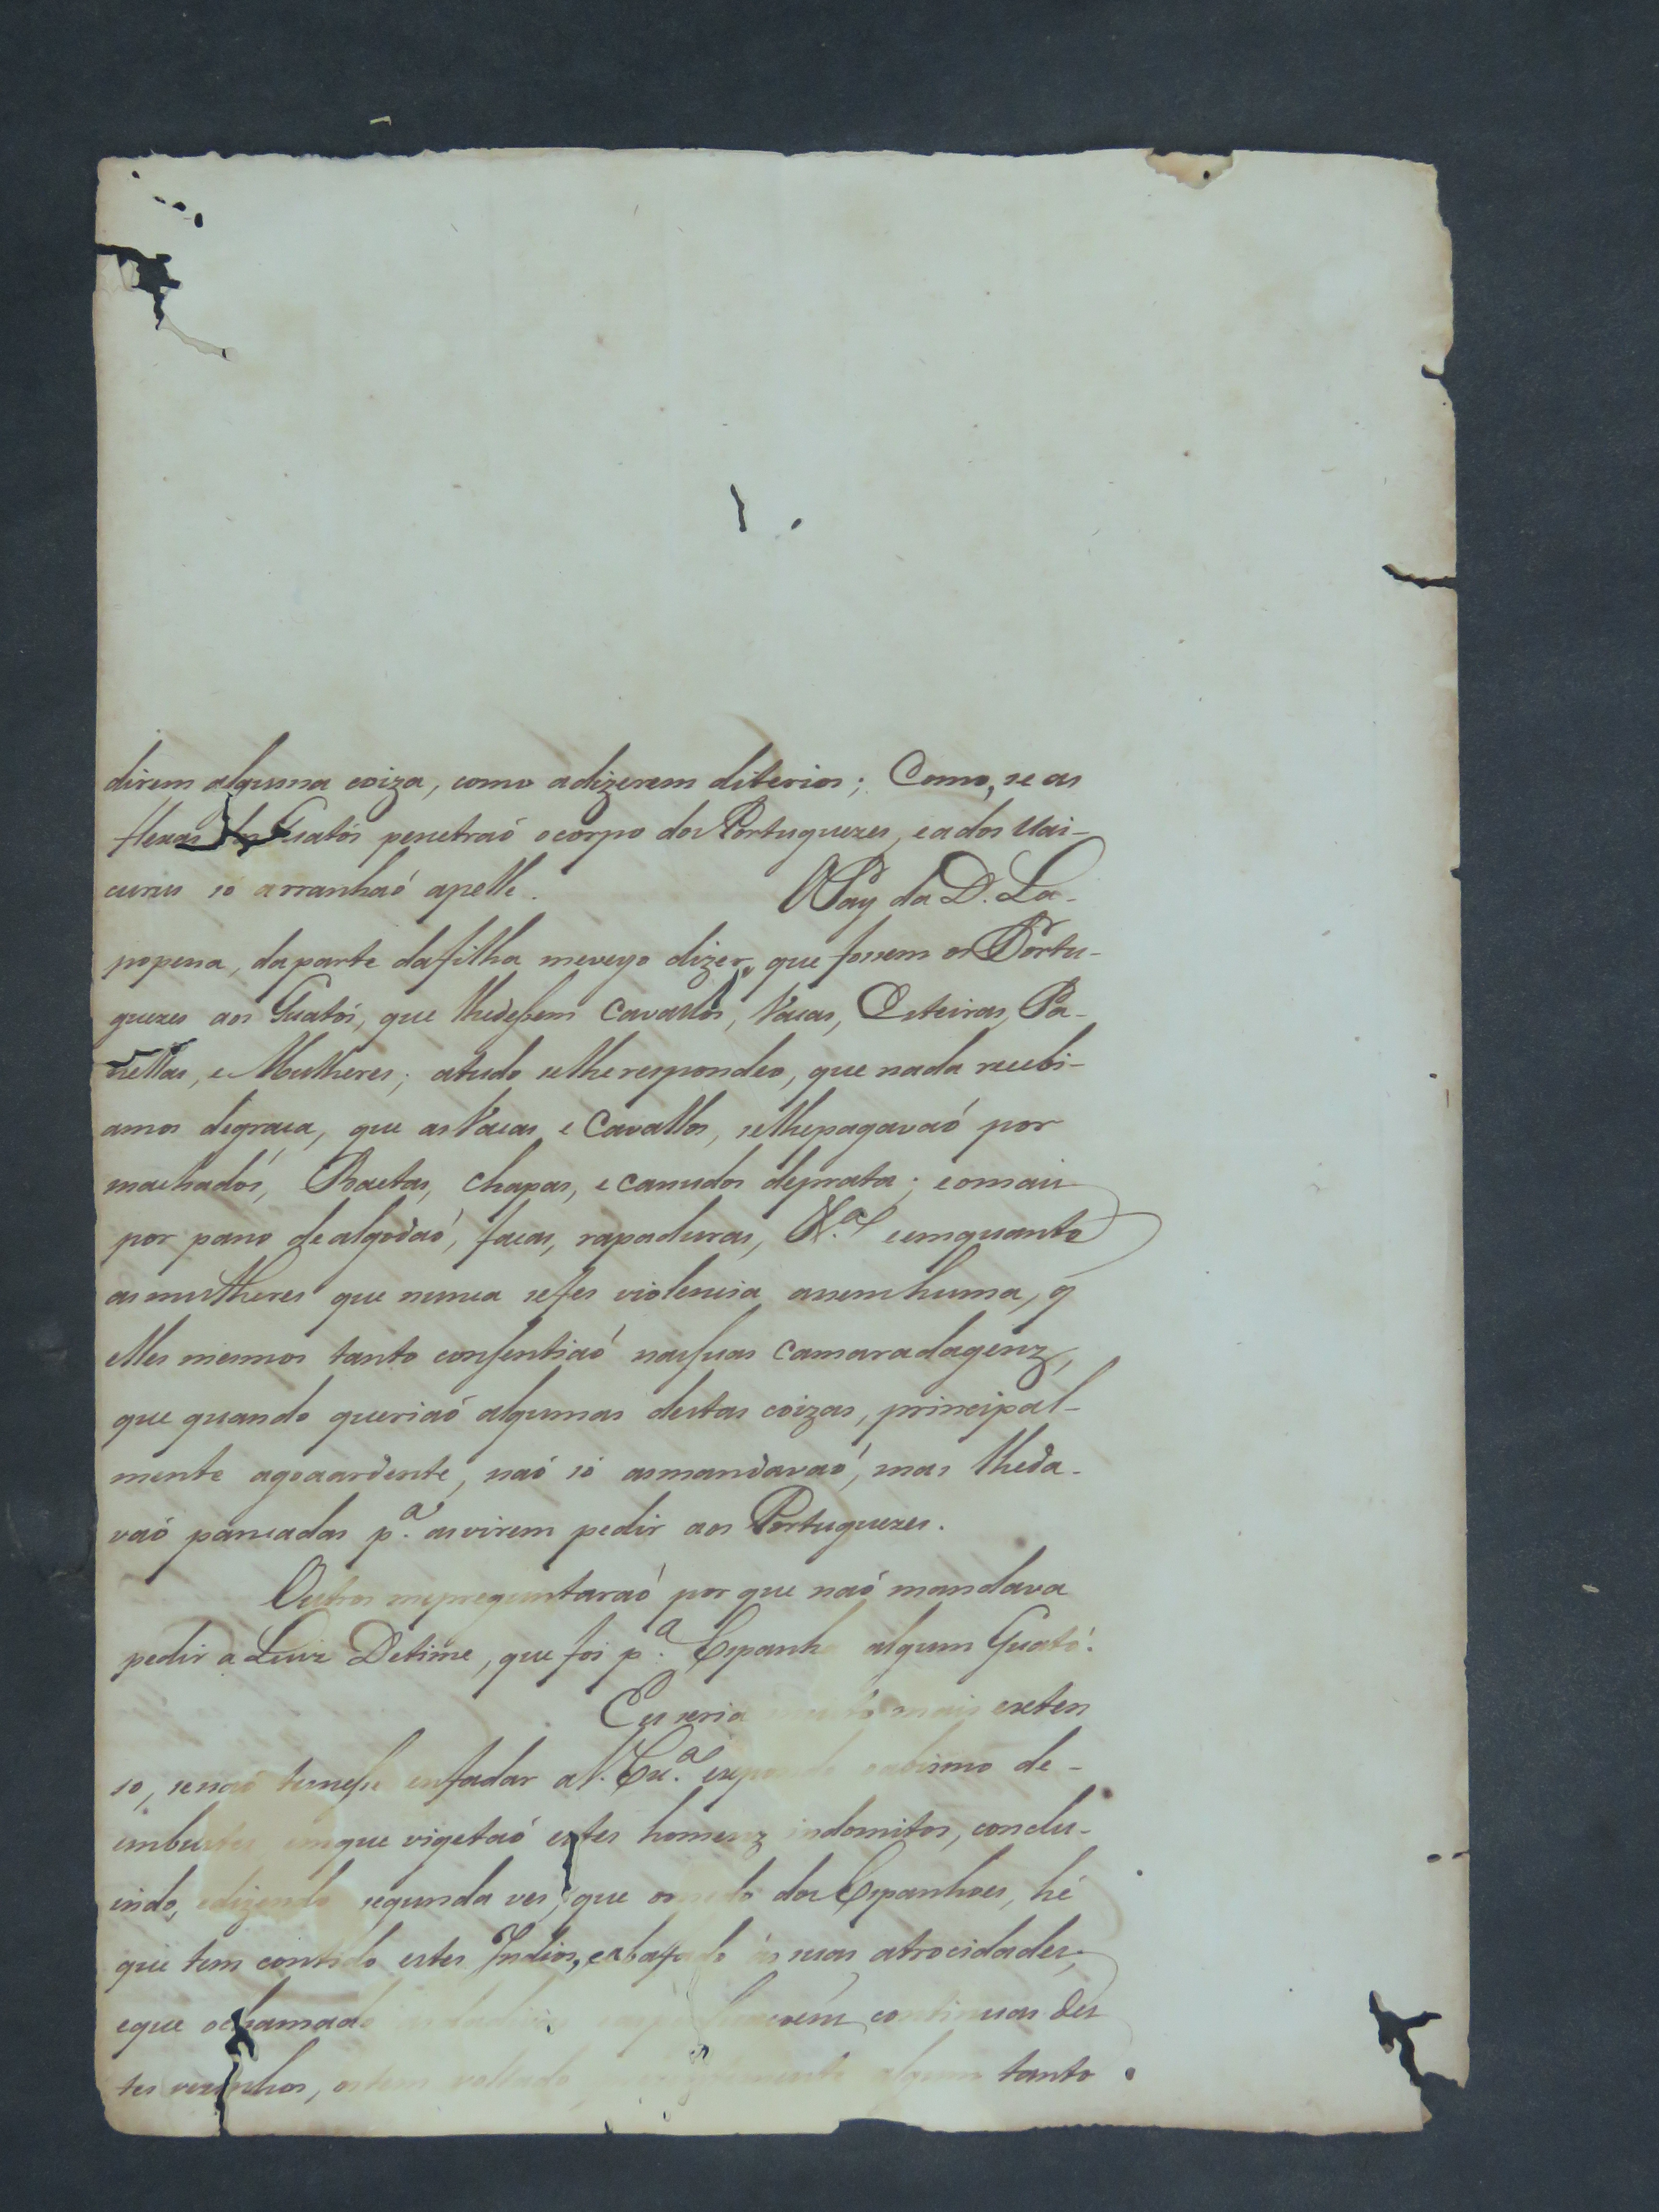 direm alguma coiza, como adizerem diterios; Como, se as
flexas dos Guatós penetraó ocorpo dos Portuguezes, eados Uai-
curus só arranhaó apelle. O Pay da D. La-
popena, daparte dafilha meveyo dizer, que fossem os Portu-
guezes aos Guatós, que lhedessem Cavallos, Vacas, Esteiras, Pa-
nellas, e Mulheres; atudo selherespondeo, que nada recebi-
amos degraca, que asVacas e Cavallos, selhepagavaó por
machados, Baetas, chapas, e canudos deprata; eomais
por pano dealgodaó, facas, rapaduras, &.ª eemquanto
asmulheres que nunca sefes violencia anemhuma, q
elles mesmos tanto consentiaó nassuas camaradagenz,
que quando queriaó algumas destas coizas, principal-
mente agoaardente, naó só asmandavaó, mas lheda-
vaó pancadas p.ª asvirem pedir aos Portuguezes.
Outros mepreguntaraó por que naó mandava
pedir a Luiz Detime, que foi p.ª Espanha algum Guató.
Eu seria muito mais exten
so, senaó temesse enfadar aV. Ex.ª expondo oabismo de-
embustes emque vigetaó estes homenz indomitos, conclu-
indo, edizendo segunda ves, que omedo dos Espanhoes, hé
que tem contido estes Indios, eabafado as suas atrocidades;
eque ochamado continuas des
tes vezinhos, ostem voltado algum tanto